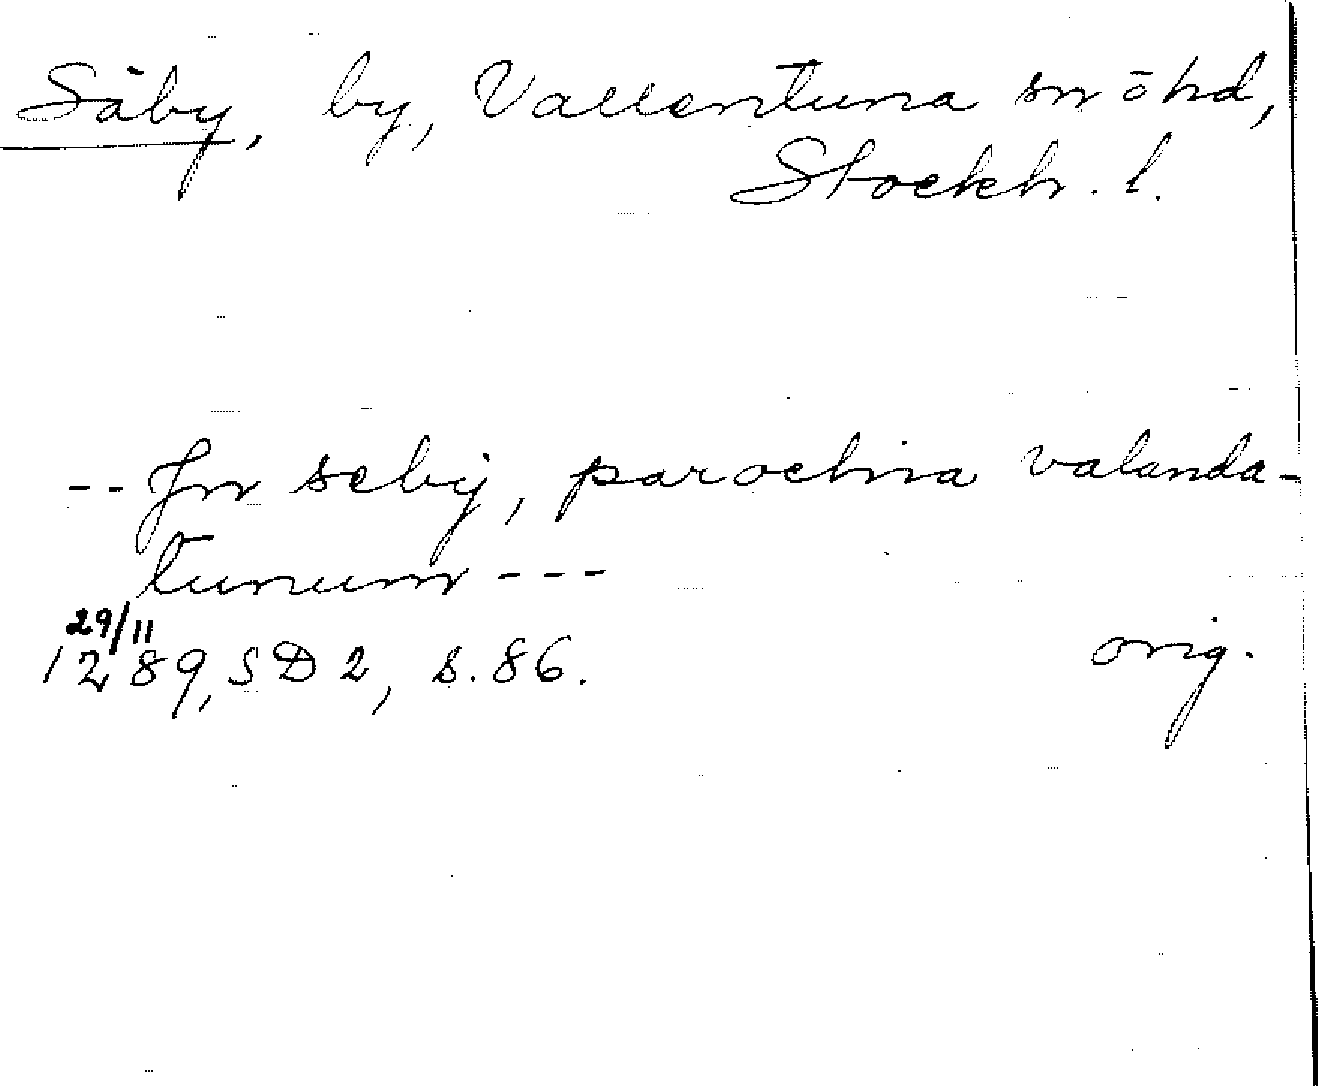 Säby, by, Vallentuna sn ō hd,
Stockh. l.
-- Jn seby, parochia valanda-
tunum ---
29/11
1289, SD 2, s. 86. orig.